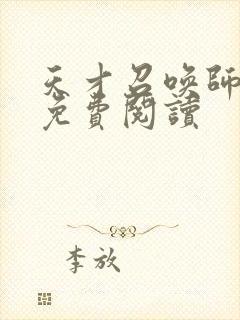 天才召唤師
免費閱讀
李放